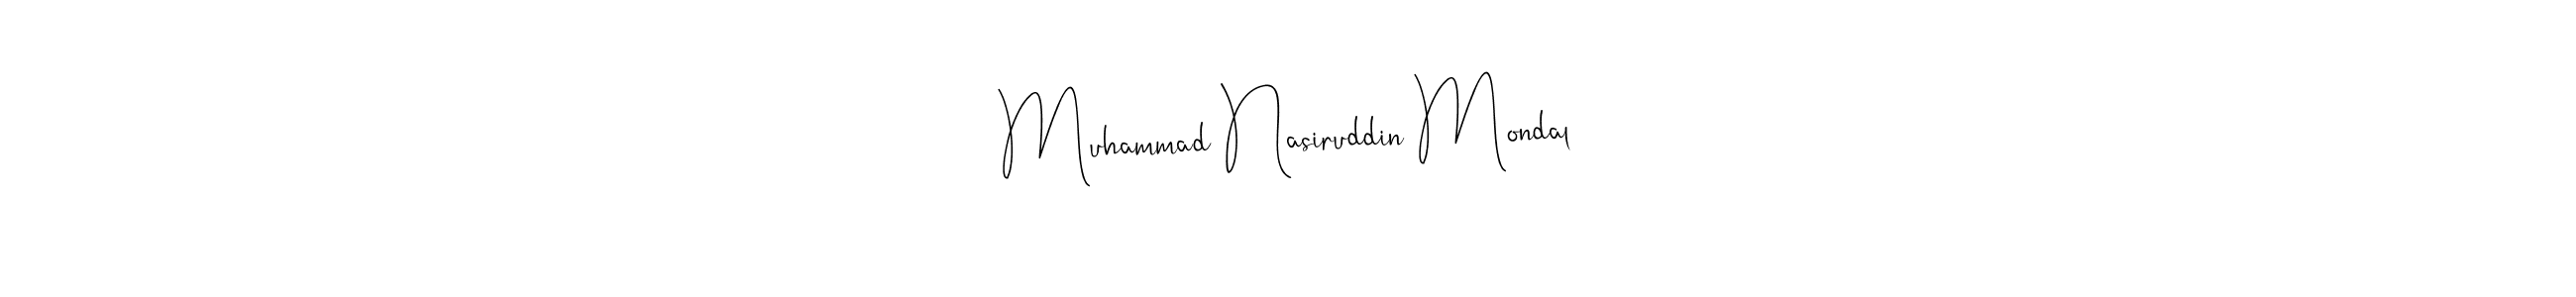 Muhammad Nasiruddin Mondal